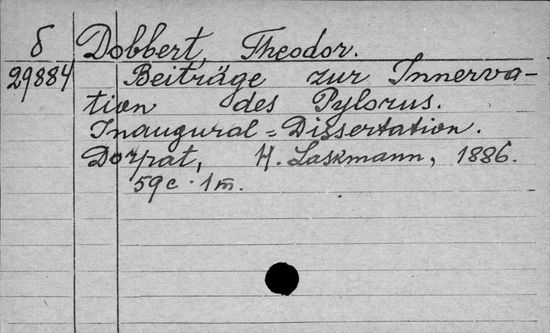 δ Dobbert, Theodor.
29884 Beiträge zur Innerva-
tion des Pylorus.
Inaugural=Dissertation.
Dorpat, H. Laakmann, 1886.
59c. 1m.